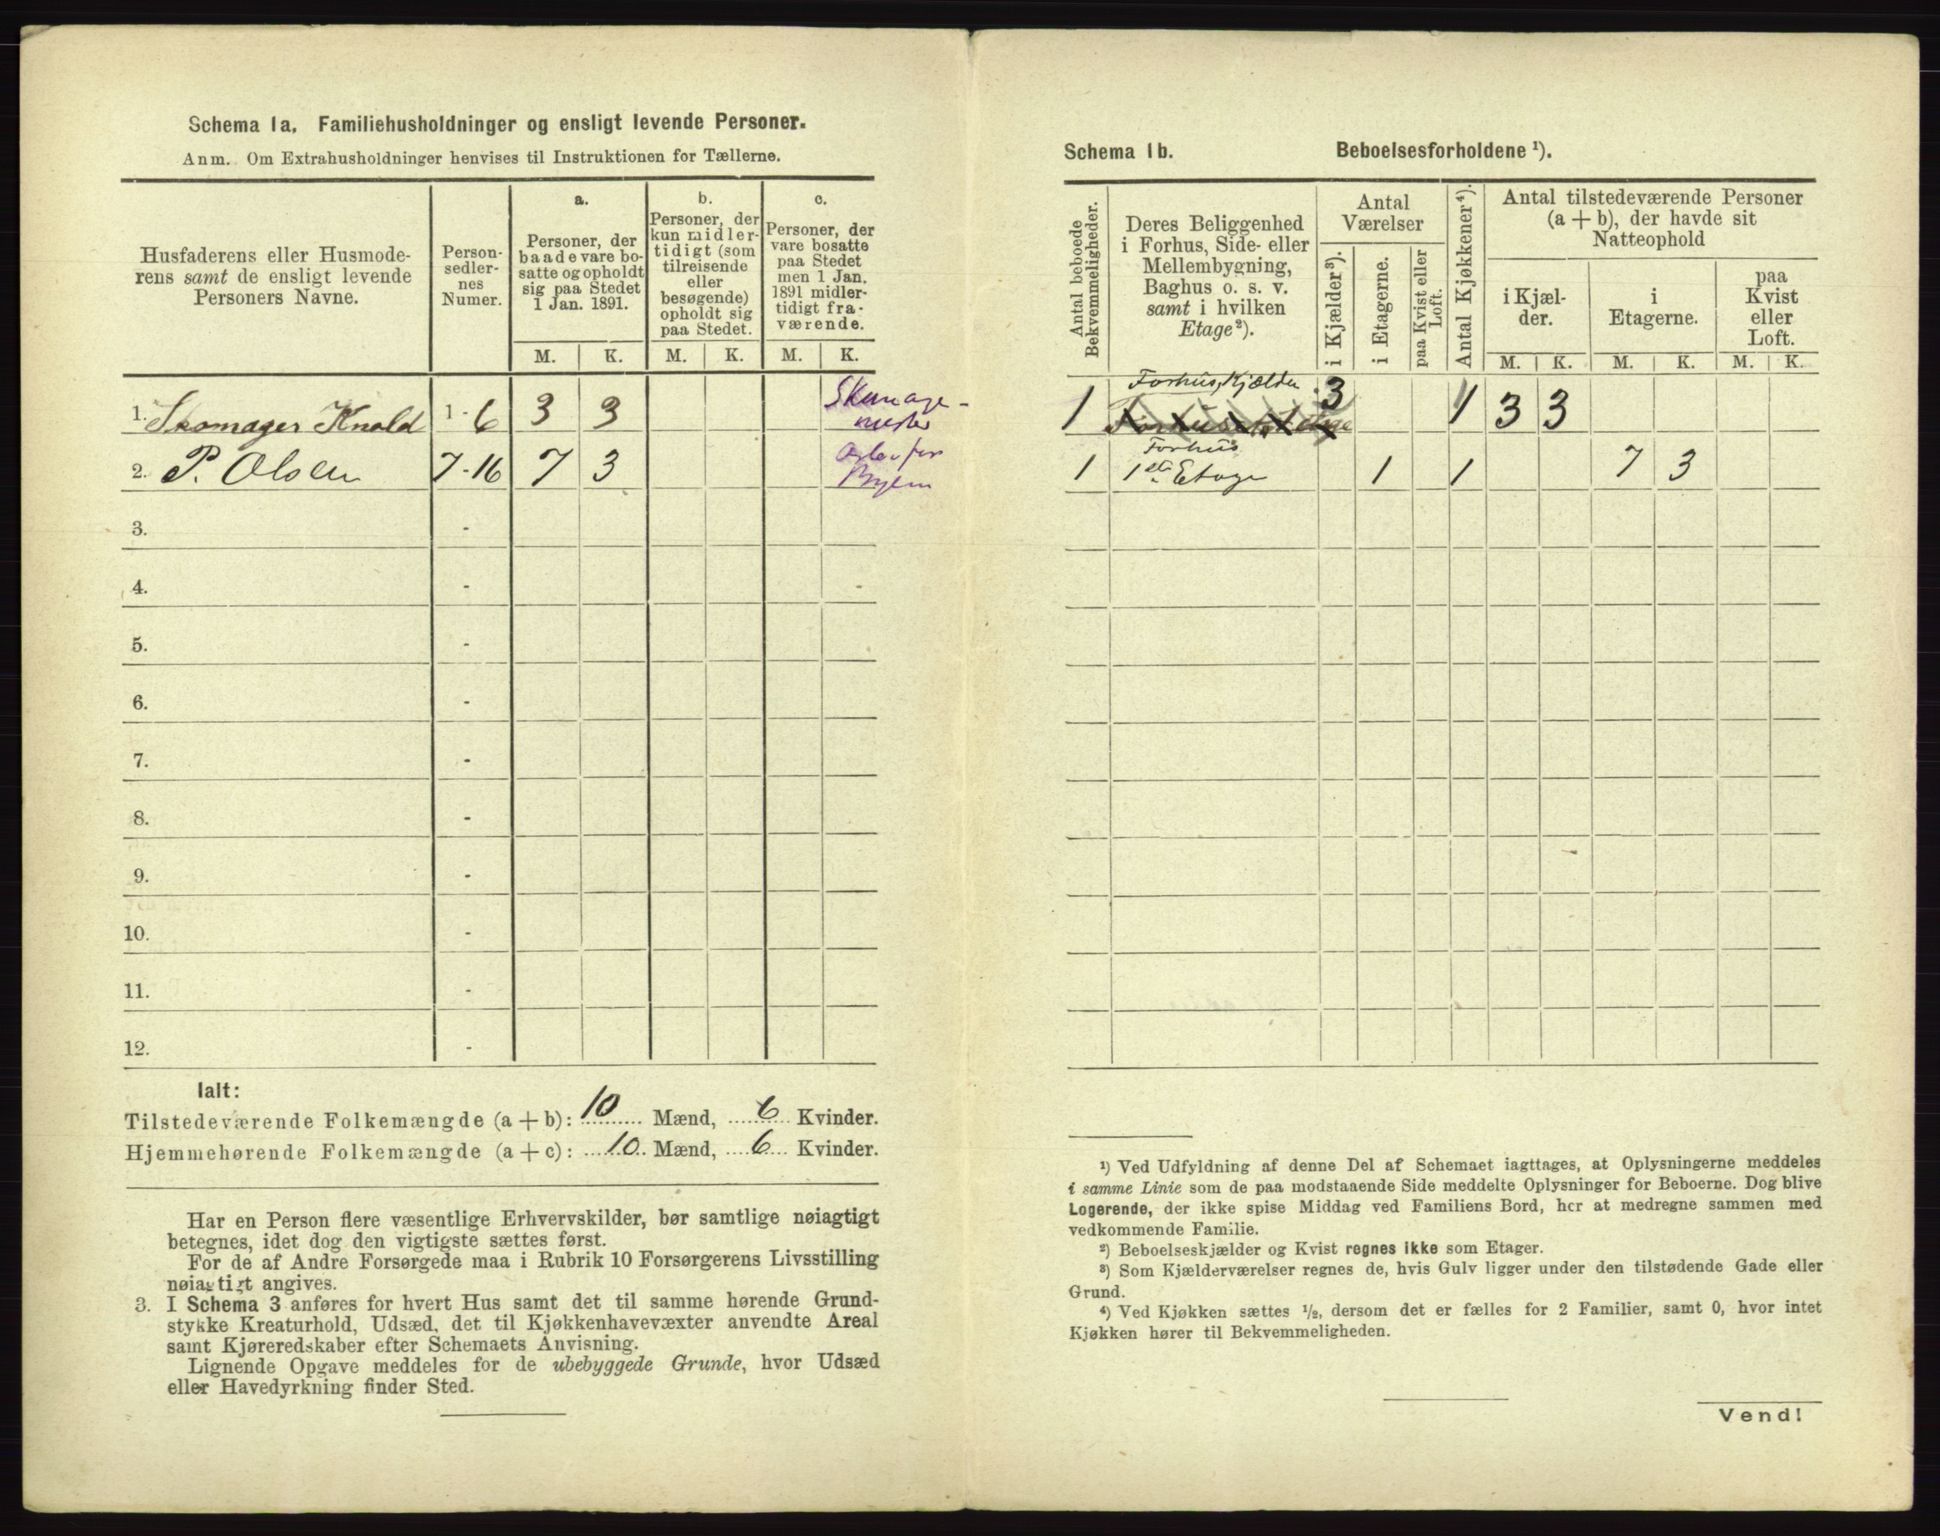 Schema 1a. Familiehusholdninger og ensligt levende Personer.
Anm. Om Extrahusholdninger henvises til Instruktionen for Tællerne.
Husfaderens eller Husmode-
rens samt de ensligt levende
Personers Navne.
Person-
sedler-
nes
Numer.
a.
Personer, der
baade vare bo-
satte og opholdt
sig paa Stedet
1 Jan. 1891.
b.
Personer, der
kun midler-
tidigt (som
tilreisende
eller
besøgende)
opholdt sig
paa Stedet.
c.
Personer, der
vare bosatte
paa Stedet
men 1 Jan.
1891 midler-
tidigt fra-
værende.
M. K. M. K. M. K.
1. Skomager Knold 1 - 6 3 3
2. P. Olsen 7 - 16 7 3
3. -
4. -
5. -
6. -
7. -
8. -
9. -
10. -
11. -
12. -
Ialt:
Tilstedeværende Folkemængde (a + b): 10 Mænd, 6 Kvinder.
Hjemmehørende Folkemængde (a + c): 10 Mænd, 6 Kvinder.
Har en Person flere væsentlige Erhvervskilder, bør samtlige nøiagtigt
betegnes, idet dog den vigtigste sættes først.
For de af Andre Forsørgede maa i Rubrik 10 Forsørgerens Livsstilling
nøiagtigt angives.
3. I Schema 3 anføres for hvert Hus samt det til samme hørende Grund-
stykke Kreaturhold, Udsæd, det til Kjøkkenhavevæxter anvendte Areal
samt Kjøreredskaber efter Schemaets Anvisning.
Lignende Opgave meddeles for de ubebyggede Grunde, hvor Udsæd
eller Havedyrkning finder Sted.
Schema 1b. Beboelsesforholdene ¹).
Antal beboede
Bekvemmeligheder.
Deres Beliggenhed
i Forhus, Side- eller
Mellembygning,
Baghus o. s. v.
samt i hvilken
Etage²).
Antal
Værelser
i Kjælder³).
i Etagerne.
paa Kvist eller
Loft.
Antal Kjøkkener⁴).
Antal tilstedeværende Personer
(a + b), der havde sit
Natteophold
i Kjæl-
der.
i
Etagerne.
paa
Kvist
eller
Loft.
M. K. M. K. M. K.
Forhus, Kjælder
1 3 1 3 3
Forhus
1 1ste Etage 1 1 7 3
¹) Ved Udfyldning af denne Del af Schemaet iagttages, at Oplysningerne meddeles
i samme Linie som de paa modstaaende Side meddelte Oplysninger for Beboerne. Dog blive
Logerende, der ikke spise Middag ved Familiens Bord, her at medregne sammen med
vedkommende Familie.
²) Beboelseskjælder og Kvist regnes ikke som Etager.
³) Som Kjælderværelser regnes de, hvis Gulv ligger under den tilstødende Gade eller
Grund.
⁴) Ved Kjøkken sættes ½, dersom det er fælles for 2 Familier, samt 0, hvor intet
Kjøkken hører til Bekvemmeligheden.
Vend!